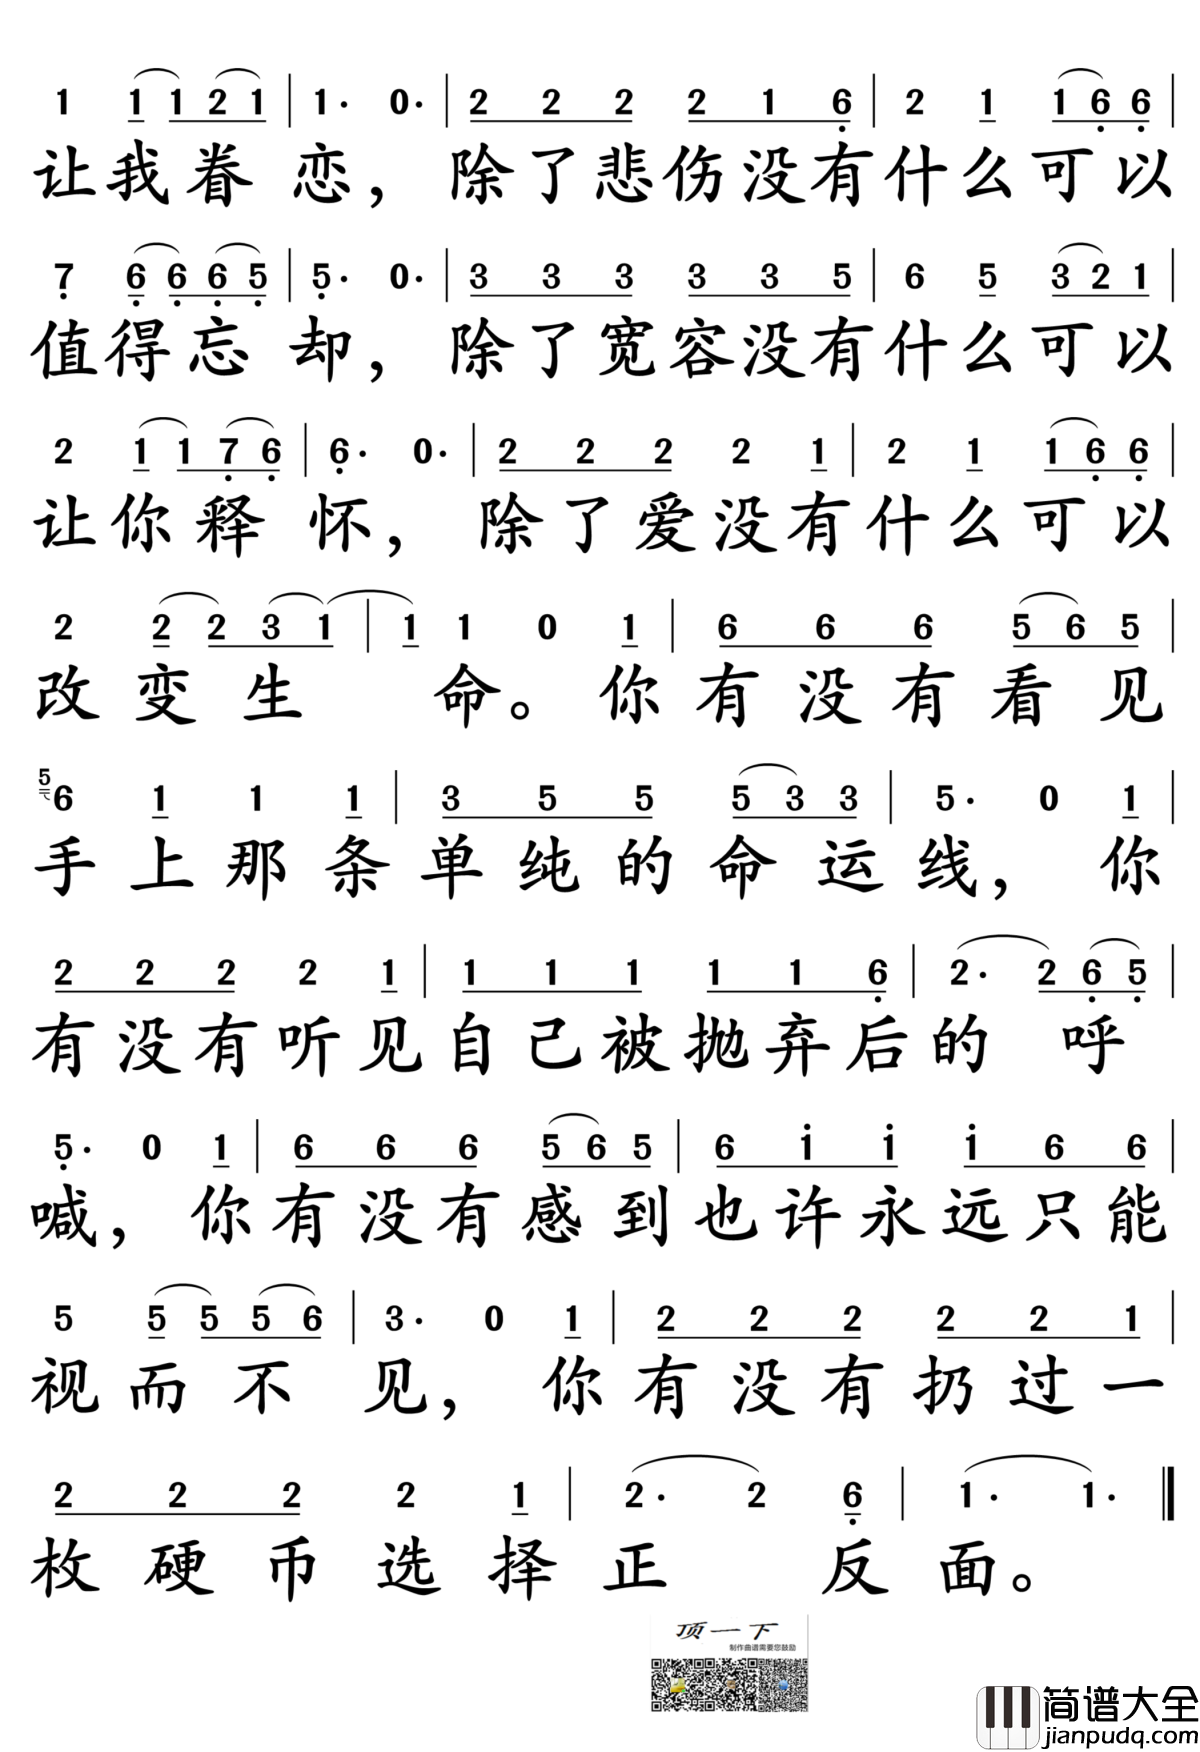 1 1 1 2 1 | 1· 0· | 2 2 2 2 1 6 | 2 1 1 6 6 |
让我眷恋，除了悲伤没有什么可以
7 6 6 6 5 | 5· 0· | 3 3 3 3 3 5 | 6 5 3 2 1 |
值得忘却，除了宽容没有什么可以
2 1 1 7 6 | 6· 0· | 2 2 2 2 1 | 2 1 1 6 6 |
让你释怀，除了爱没有什么可以
2 2 2 3 1 | 1 1 0 1 | 6 6 6 5 6 5 |
改变生命。你有没有看见
5 6 1 1 1 | 3 5 5 5 3 3 | 5· 0 1 |
手上那条单纯的命运线，你
2 2 2 2 1 | 1 1 1 1 1 6 | 2· 2 6 5 |
有没有听见自己被抛弃后的呼
5· 0 1 | 6 6 6 5 6 5 | 6 1 1 1 6 6 |
喊，你有没有感到也许永远只能
5 5 5 5 6 | 3· 0 1 | 2 2 2 2 2 1 |
视而不见，你有没有扔过一
2 2 2 2 1 | 2· 2 6 | 1· 1· ‖
枚硬币选择正反面。
顶一下
制作曲谱需要您鼓励
简谱大全
jianpudq.com